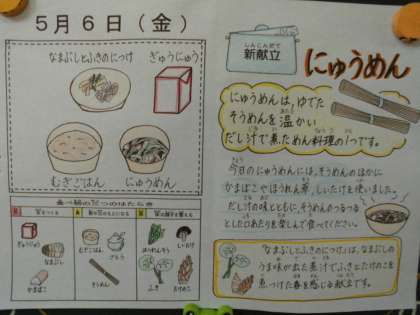 5月6日（金）
なまぶしとふきのにつけ
ぎゅうにゅう
むぎごはん
にゅうめん
食べ物の三つのはたらき
ぎゅうにゅう
なまぶし
かまぼこ
むぎごはん
さとう
そうめん
ほうれんそう
しいたけ
ふき
たけのこ
しんこんだて
新献立
にゅうめん
にゅうめんは、ゆでた
そうめんを温かい
だし汁で煮ためん料理の1つです。
今日のにゅうめんには、そうめんのほかに
かまぼこやほうれん草、しいたけを使いました。
だし汁の味とともに、そうめんのつるつる
とした口あたりを楽しんで食べてください。
「なまぶしとふきのにつけ」は、なまぶしの
うま味が出た煮汁でふきとたけのこを
煮つけた春を感じる献立です。